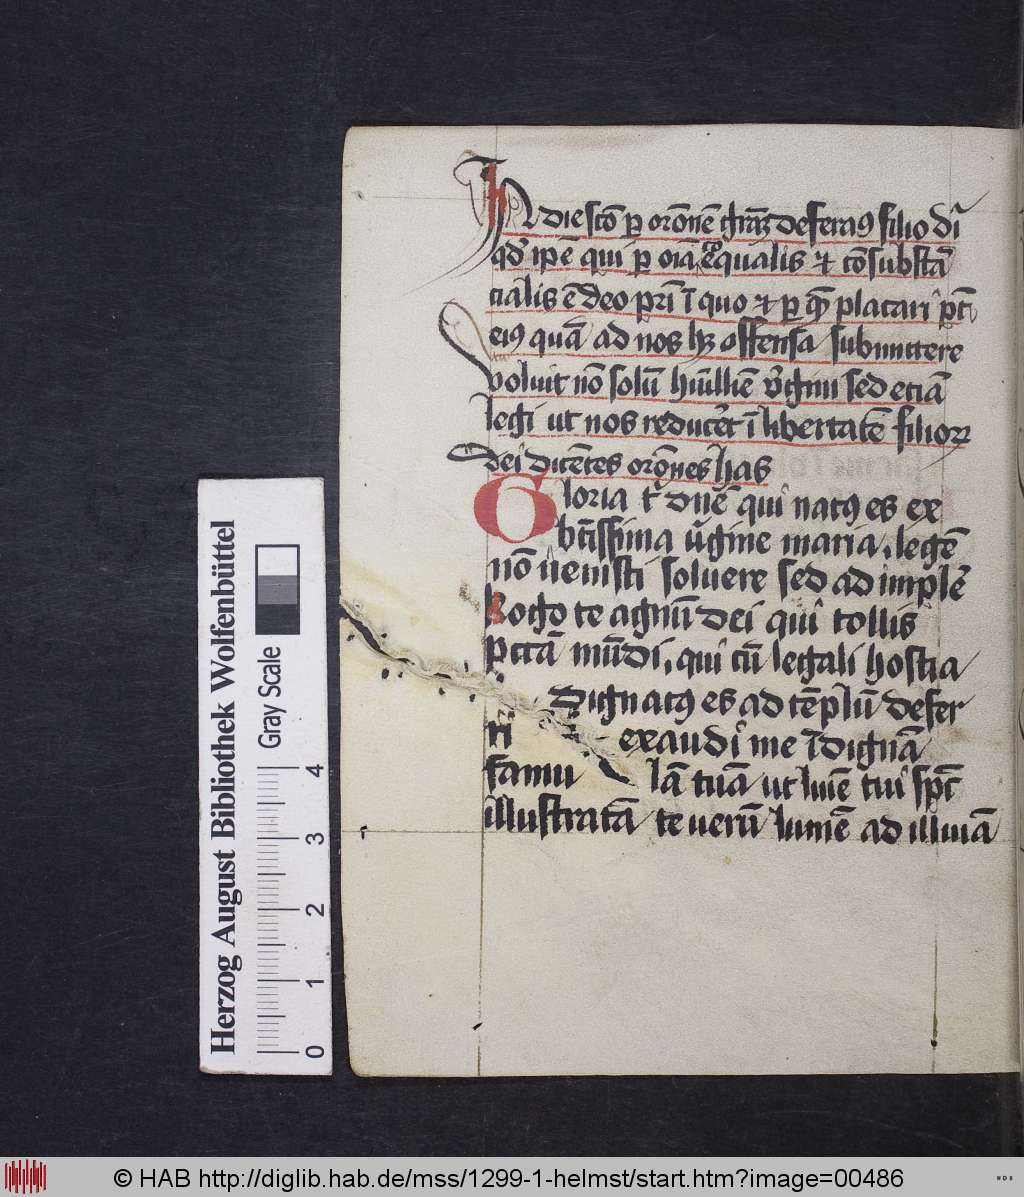 In die sc̄o ꝑ orōnē gr̄aꝝ deferaꝰ filio dī
qđ ip̄ē qui ꝑ oīa eq̄ualis ⁊ cōsubstā
cialis ē deo pr̄i ī quo ⁊ ꝑ quē placari pt̄
eiꝰ quā ad nos hꝫ offensa submittere
voluit nō solū hūilliē v̓gini sed eciā
legi ut nos reducēt ī libertatē filioꝝ
dei dicētes orōnes has
Gloria t̄ dn̄e qui natꝰ es ex
bt̄issima v̓gine maria, legē
nō uenisti soluere sed ad implē
Rogo te agnū dei qui tollis
pctā mūdi, qui cū legali hostia
Dignatꝰ es ad tēplū defer
ri exaudi me īdignā
famu lā tuā ut luīe tui spc̄
illustratā te uerū lumē ad illuiā
Herzog August Bibliothek Wolfenbüttel
Gray Scale
0 1 2 3 4
© HAB http://diglib.hab.de/mss/1299-1-helmst/start.htm?image=00486